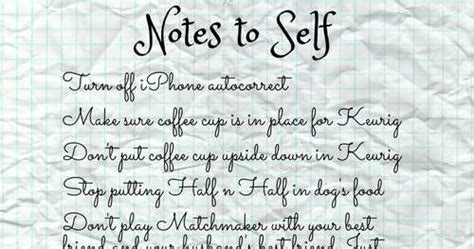 Notes to Self
Turn off iPhone autocorrect
Make sure coffee cup is in place for Keurig
Don't put coffee cup upside down in Keurig
Stop putting Half n Half in dog's food
Don't play Matchmaker with your best
friend and your husband's best friend. Just